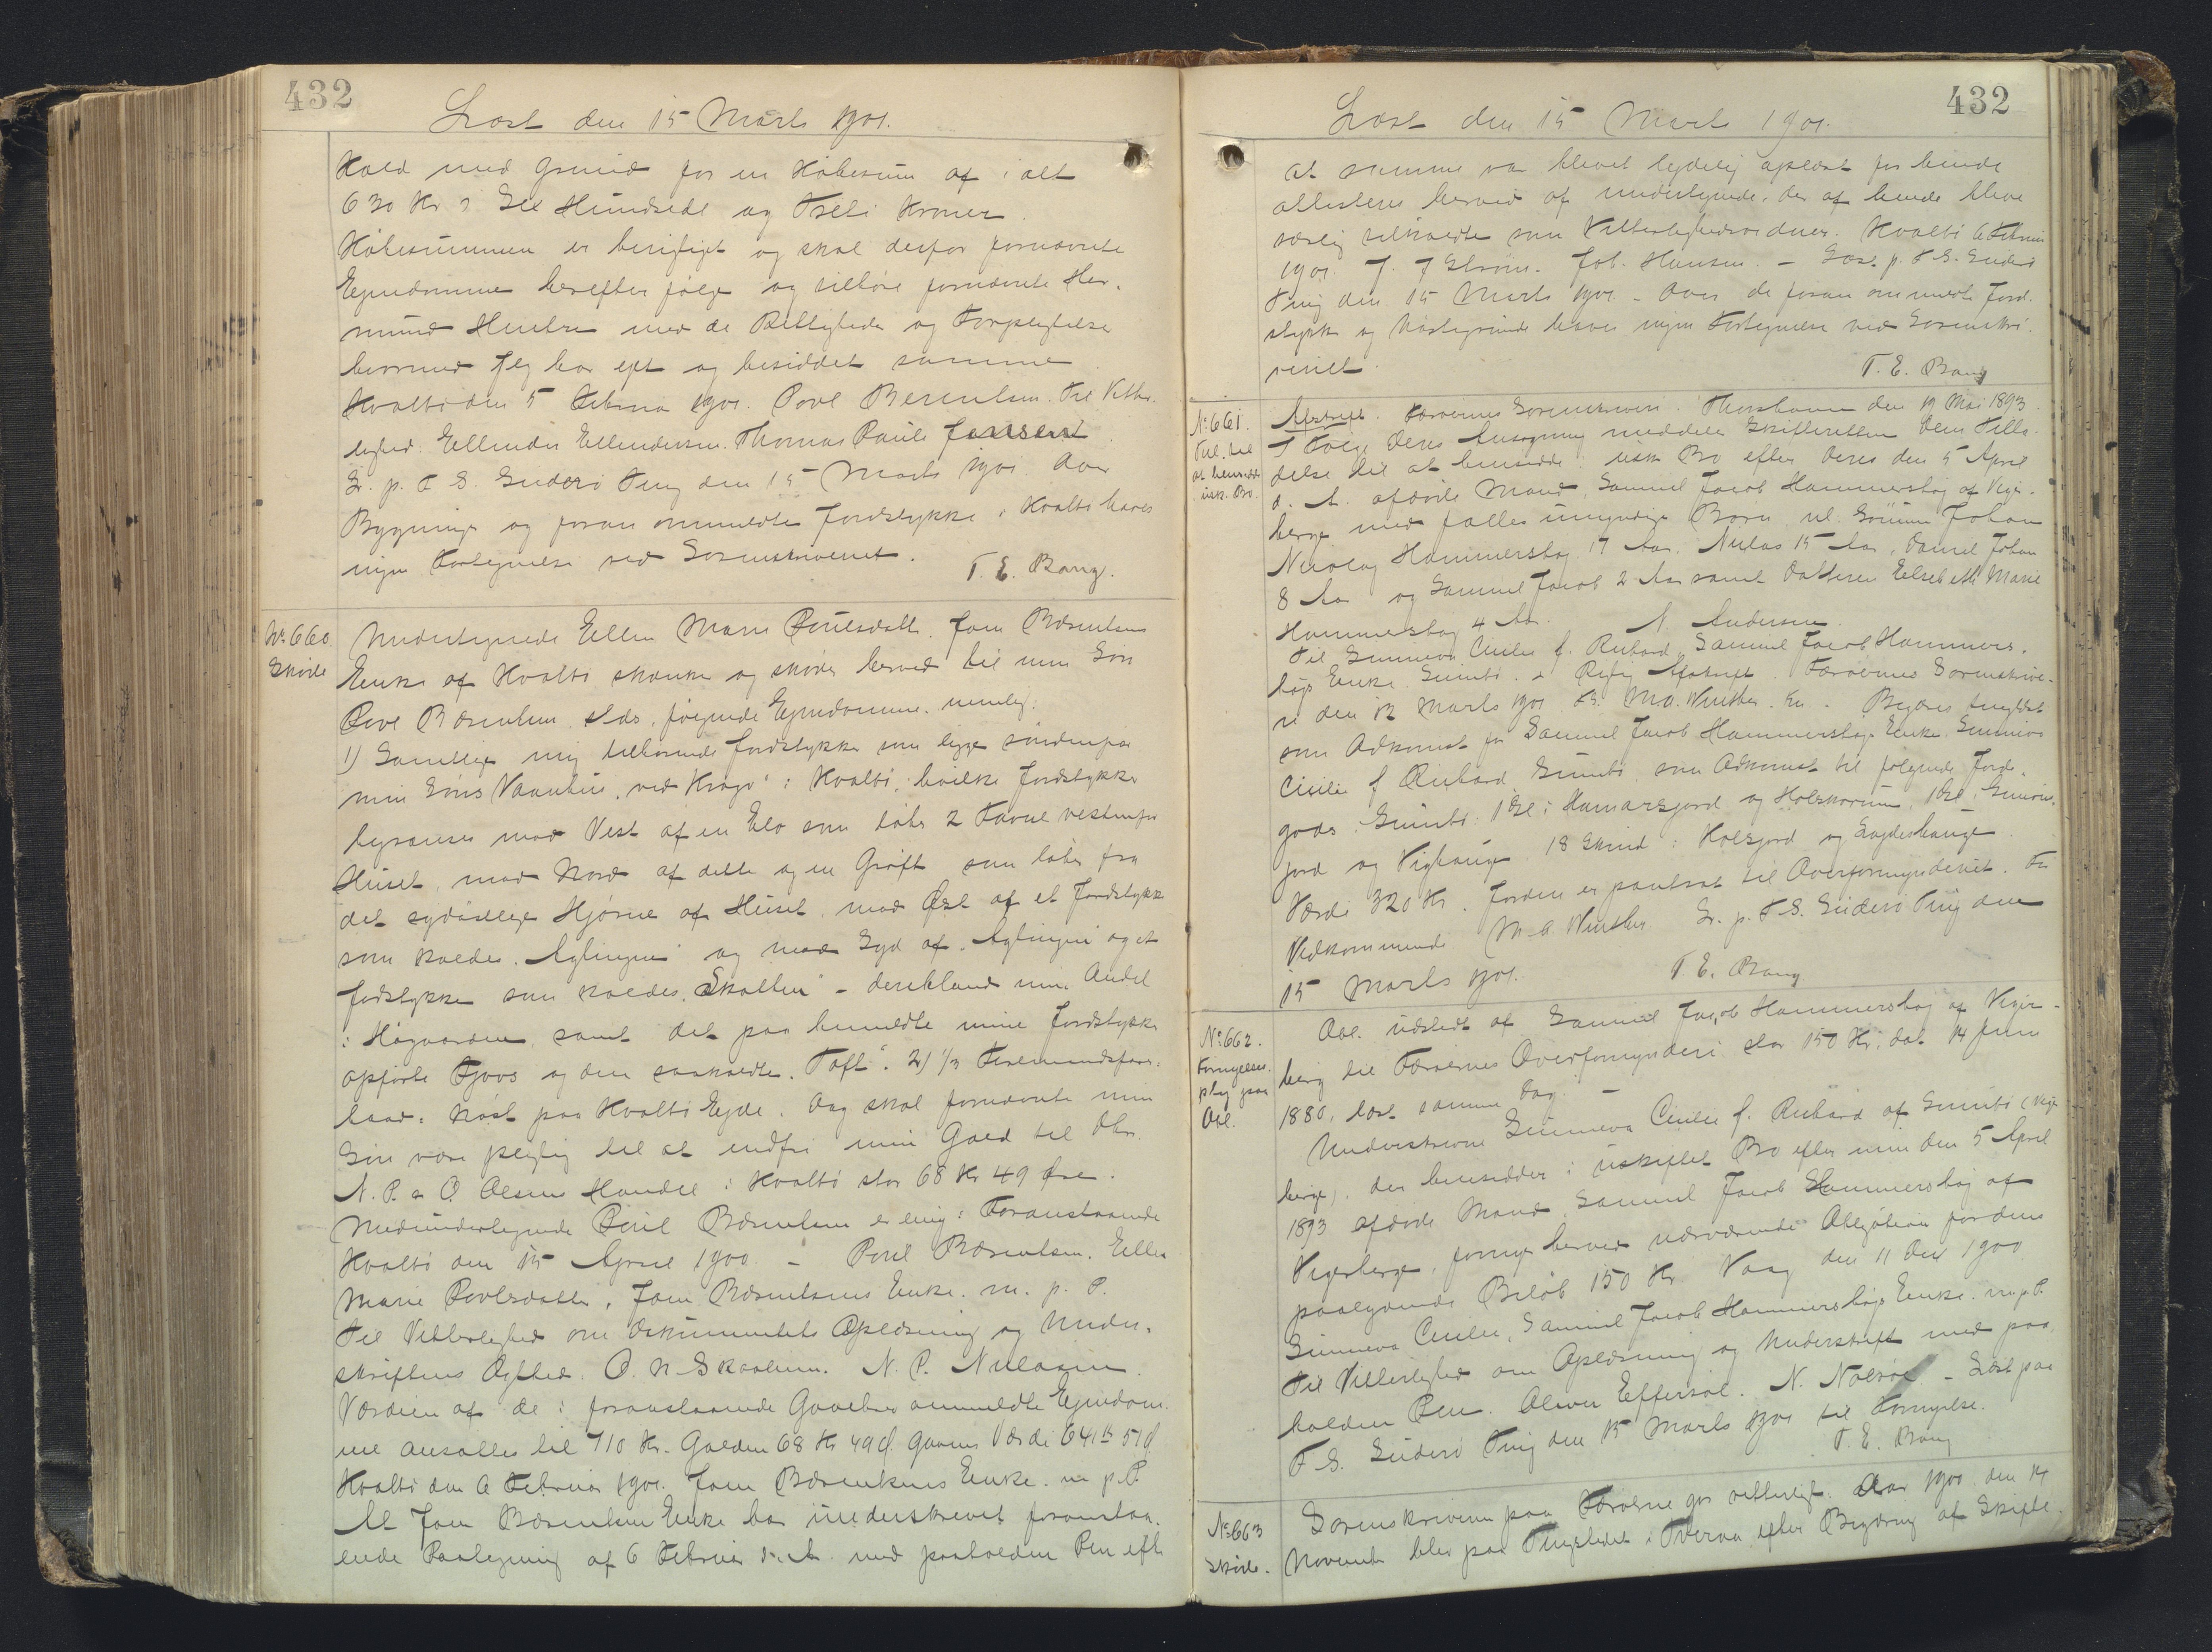 432
Læst den 15 Marts 1901.
Hald med Grund for en Købesum af i alt
630 Kr. Sex Hundrede og Treti Kroner.
Købesummen er berigtiget og skal derfor fornævnte
Ejendomme herefter følge og tilhøre fornævnte Her-
mund med de Rettigheder og Forpligtelser
hvormed Jeg har ejet og besiddet samme
Kvalbø den 5 Februar 1901. Povl Berentsen. Til Vitter-
lighed. Ellendur Ellendersen. Thomas Pauli Jensen
L. p. F. S. Suderø Ting den 15 Marts 1901. Over
Bygninger og foran ommeldte Jordstykke i Kvalbø haves
ingen Fortegnelse ved Sorenskriveriet.
T. E. Bang.
No 660.
Skøde
Undertegnede Ellen Marie Poulsdatter. Joen Bærentsens
Enke af Kvalbø skænker og skøder herved til min Søn
Povl Bærentsen sstds. følgende Ejendomme. nemlig:
1) Samtlige mig tilhørende Jordstykker som ligge søndenpaa
min Søns Vaanhus „ved Krage“ i Kvalbø, hvilke Jordstykker
begrænses mod Vest af en Elv som løber 2 Favne vestenfor
Huset, mod Nord af dette og en Grøft som løber fra
det sydøstlige Hjørne af Huset, mod Øst af et Jordstykke
som kaldes „Aglingen“ og mod Syd af „Aglingen“ og et
Jordstykke som kaldes „Skalten“ - min Andel
i Høgaarden samt det paa bemeldte mine Jordstykker
opførte Fjoos og den saakaldte „Toft“. 2) 1/3
Nøst paa Kvalbø Eyde. Dog skal fornævnte min
Søn være pligtig til at indfri min Gæld til Dhr.
N. P. & O. Olsens Handel i Kvalbø stor 68 Kr 49 Øre.
Medundertegnede Poul Bærentsen er enig i Foranstaaende
Kvalbø den 15 April 1900 - Povl Bærentsen. Ellen
Marie Povlsdatter, Joen Bærentsens Enke. m. p. P.
Til Vitterlighed om Dokumentets Oplæsning og Under-
skriftens Ægthed. O. N. Skaalum. N. P. Nielasen
Værdien af de i foranstaaende Gavebrev ommeldte Ejendom-
me ansættes til 710 Kr. Gælden 68 Kr 49 Ø. Gavens Værdi 641 Kr 51 Ø
Kvalbø den 6 Februar 1901. Joen Bærentsens Enke. m. p. P.
At Joen Bærentsens Enke har underskrevet foranstaa-
ende Paategning af 6 Februar d. A. med paaholden Pen efter
432
Læst den 15 Marts 1901.
at samme var blevet tydelig oplæst for hende
attesteres herved af undertegnede, der af hende bleve
særlig tilkaldte som Vitterlighedsvidner. Kvalbø 6 Februar
1901. J. J. Strøm. Joh. Hansen. - Læst p. F. S. Suderø
Ting den 15 Marts 1901 - Over de foran ommeldte Jord-
stykker og Nøstegrunde haves ingen Fortegnelse ved Sorenskri-
veriet
T. E. Bang
No: 661.
Til. til
at hensidde
i usk. Bo.
Afskrift. Færøernes Sorenskriveri. Thorshavn den 19 Mai 1893.
I Følge Deres Ansøgning meddeler Skifteretten Dem Tilla-
delse til at hensidde i usk. Bo efter Deres den 5 April
d. A. afdøde Mand, Samuel Jacob Hammershøj af Vejr-
berge med fælles umyndige Børn nl. Sønnen Johan
Nicolaj Hammershøj 17 Aar. Niclas 15 Aar, Daniel Johan
8 Aar og Samuel Jacob 2 Aar samt Datteren Elsebeth Marie
Hammershøj 4 Aar. N. Andersen
Til Sunneva Cicilie f. Richard, Samuel Jacob Hammers-
højs Enke. Sumbø. - Rigtig Afskrift Færøernes Sorenskrive-
ri den 12 Marts 1901. M. A. Winther. - Begæres tinglæst
som Adkomst for Samuel Jacob Hammershøjs Enke, Sunneva
Cicilie f. Richard Sumbø som Adkomst til følgende Jorde-
gods. Sumbø: 1 Gl. i Hamarsgjord og Holskorum, 1 Gl. i
jord og Vighauge 18 Skind i Holsgjord og
Værdi 320 Kr. Jorden er pantsat til Overformynderiet. For
Vedkommende M. A. Winther L. p. F. S. Suderø Ting den
15 Marts 1901. T. E. Bang
No: 662.
Fornyelses-
paa
Obl.
Obl. udstedt af Samuel Jacob Hammershøj af Vejr-
berg til Færøernes Overformynderi stor 150 Kr. dat. 14 Juni
1880, læst samme Dag. -
Underskrevne Sunneva Cicilie f. Richard af Sumbø (Vejr-
berge), der hensidder i uskiftet Bo efter min den 5 April
1893 afdøde Mand Samuel Jacob Hammershøj af
Vejrberge, fornyer herved nærværende Obligation for dens
paalydende Beløb 150 Kr. Vaag den 11 Dec 1900
Sunneva Cicilie, Samuel Jacob Hammershøjs Enke. m. p. P.
Til Vitterlighed om Oplæsning og Underskrift med paa-
holden Pen. Oliver Effersøe. N. Nolsøe. - Læst paa
F. S. Suderø Ting den 15 Marts 1901 til Fornyelse.
T. E. Bang
No: 663
Skøde.
Sorenskriveren paa Færøerne gør vitterligt. Aar 1900 den 14
November blev paa Tingstedet i Tveraa efter Begæring af Skifte-